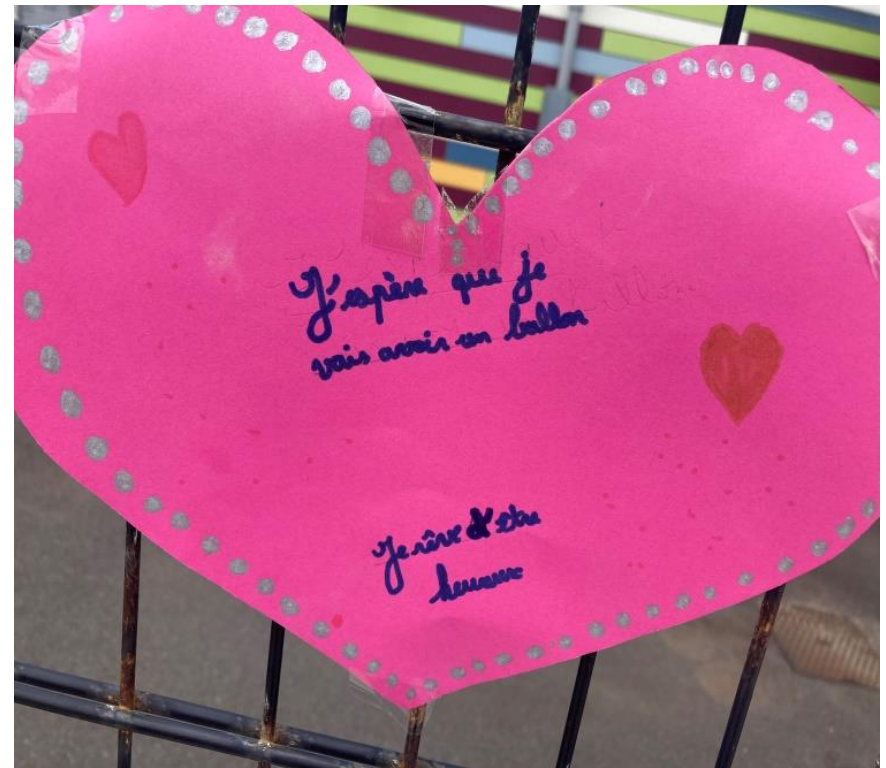 J'espère que je
vais avoir un ballon
Je rêve d'être
heureux